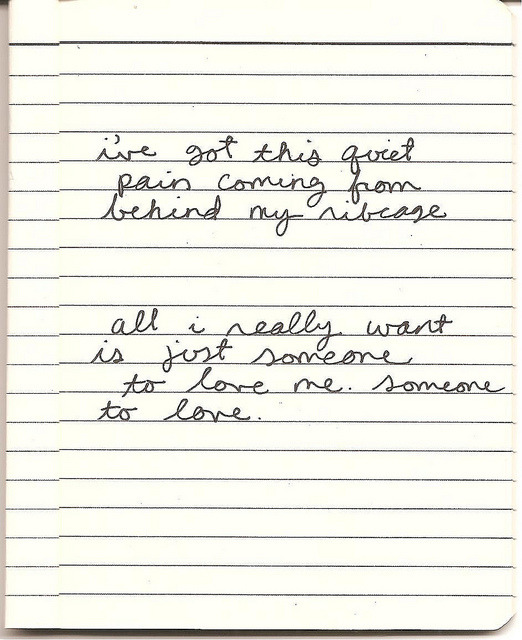 i've got this quiet
pain coming from
behind my ribcage
all i really want
is just someone
to love me. someone
to love.